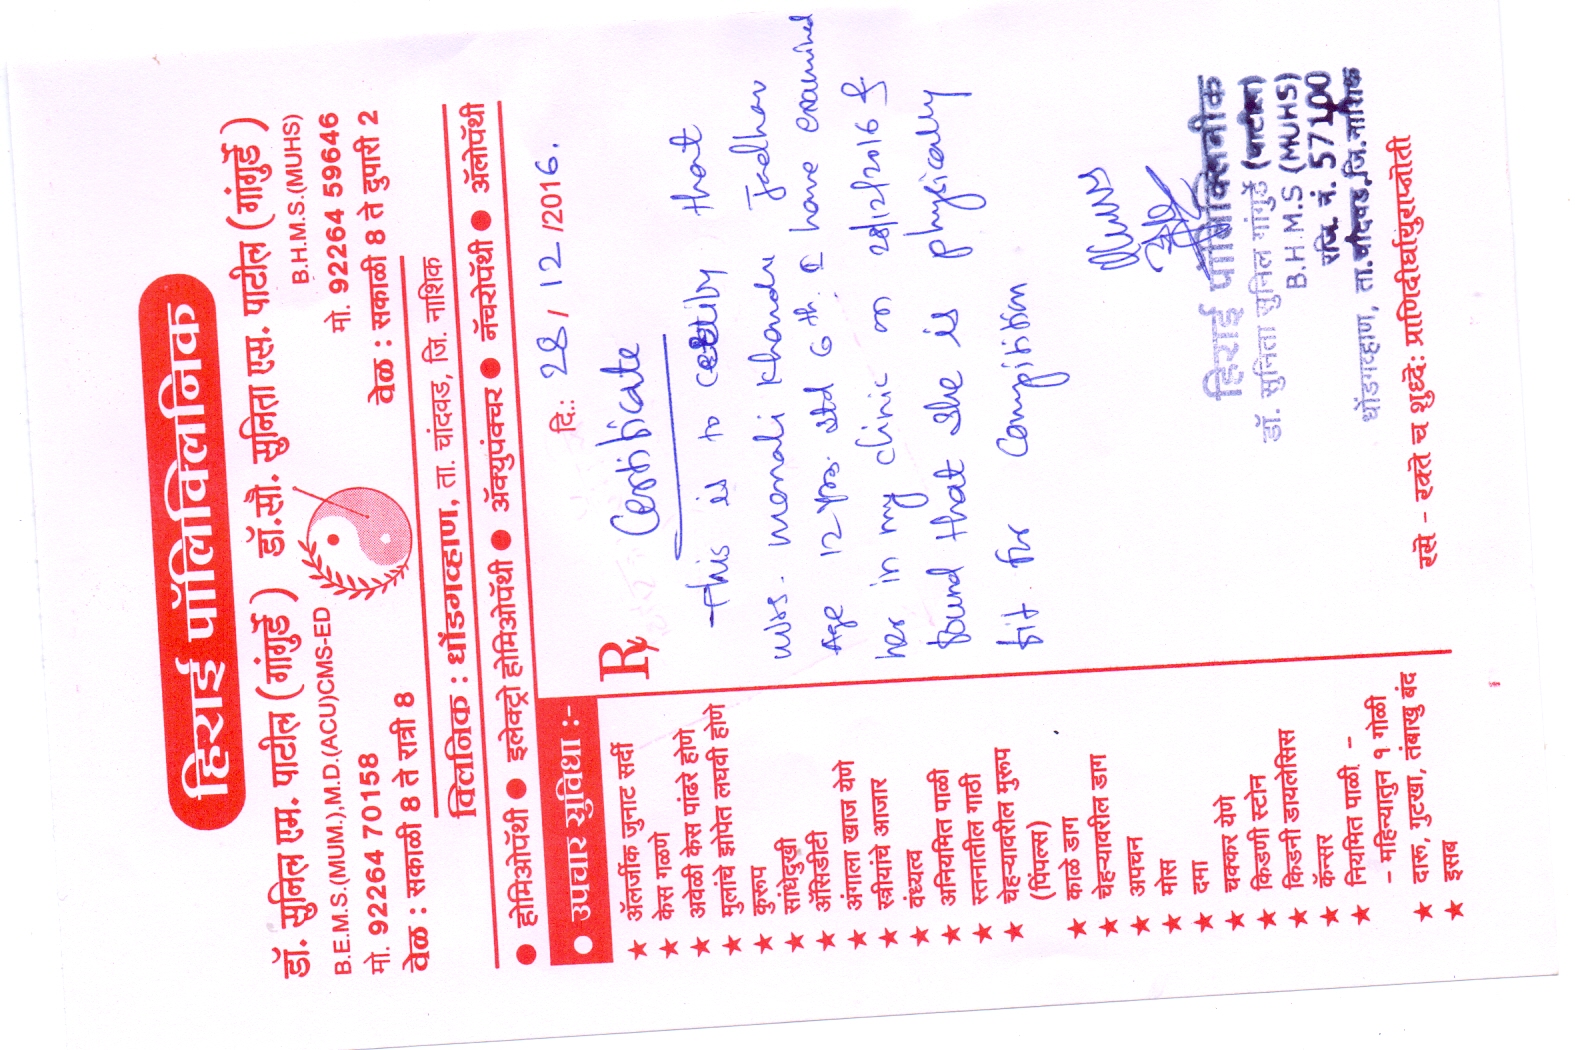 हिराई पॉलिक्लिनिक
डॉ. सुनिल एम. पाटील ( गांगुर्डे )
B.E.M.S.(MUM.),M.D.(ACU)CMS-ED
मो. 92264 70158
वेळ : सकाळी 8 ते रात्री 8
डॉ.सौ. सुनिता एस. पाटील ( गांगुर्डे )
B.H.M.S.(MUHS)
मो. 92264 59646
वेळ : सकाळी 8 ते दुपारी 2
क्लिनिक : धोंडगव्हाण, ता. चांदवड, जि. नाशिक
● होमिओपॅथी ● इलेक्ट्रो होमिओपॅथी ● ॲक्युपंक्चर ● नॅचरोपॅथी ● ॲलोपॅथी
● उपचार सुविधा :-
★ ॲलर्जीक जुनाट सर्दी
★ केस गळणे
★ अवेळी केस पांढरे होणे
★ मुलांचे झोपेत लघवी होणे
★ कुरूप
★ सांधेदुखी
★ ॲसिडीटी
★ अंगाला खाज येणे
★ स्त्रीयांचे आजार
★ वंध्यत्व
★ अनियमित पाळी
★ स्तनातील गाठी
★ चेहऱ्यावरील मुरूप
(पिंपल्स)
★ काळे डाग
★ चेहऱ्यावरील डाग
★ अपचन
★ मोस
★ दमा
★ चक्कर येणे
★ किडणी स्टोन
★ किडनी डायलेसिस
★ कॅन्सर
★ नियमित पाळी -
- महिन्यातुन १ गोळी
★ दारू, गुटखा, तंबाखु बंद
★ इसब
दि.: 28/12/2016.
Rx
Certificate
This is to certify that
Mrs. Monali Khandu Jadhav
Age 12 yrs. Std 6th. I have examined
her in my clinic on 28/12/2016 &
found that she is physically
fit for Compitition
हिराई पॉलिक्लिनीक
डॉ. सुनिता सुनिल गांगुर्डे (पाटील)
B.H.M.S (MUHS)
रजि. नं. 57100
धोंडगव्हाण, ता.चांदवड,जि.नाशिक
रसे - रक्ते च शुध्दे: प्राणिदीर्घायुराप्नोती